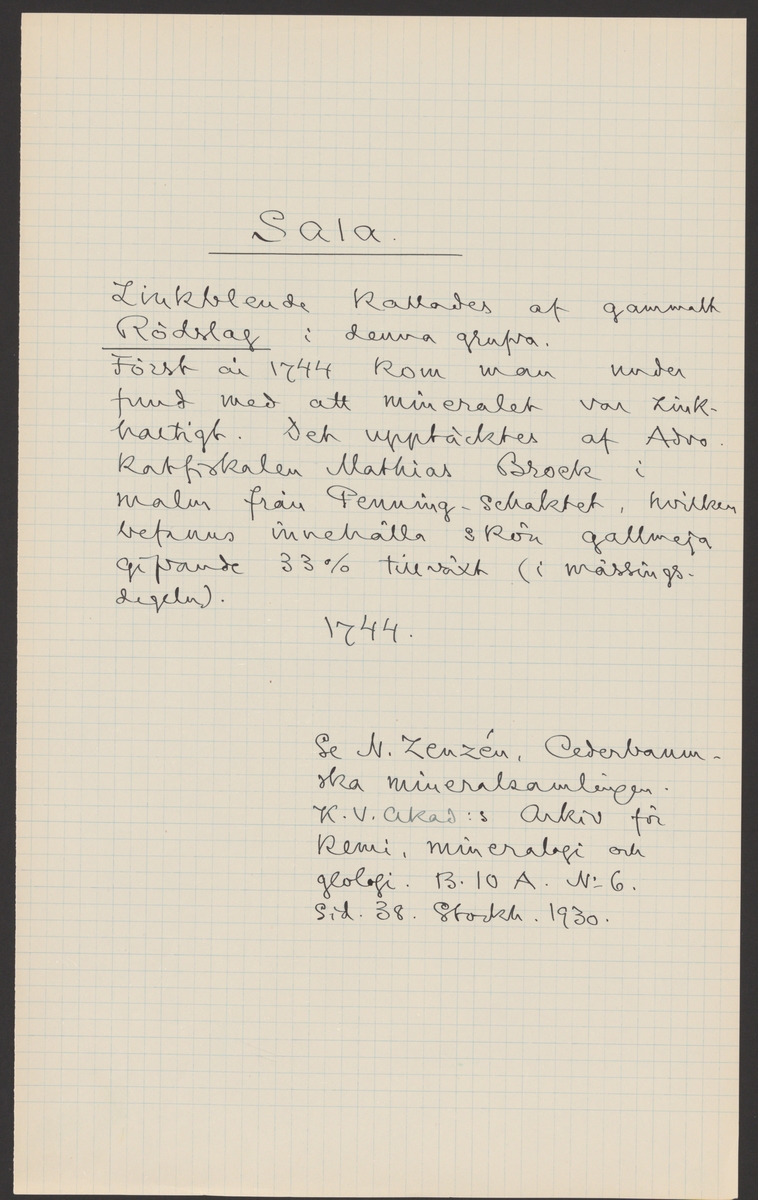 Sala.
Zinkblende kallades af gammalt
Rödslag i denna grufva.
Först år 1744 kom man under
fund med att mineralet var zink-
haltigt. Det upptäcktes af Advo-
katfiskalen Mathias Brock i
malm från Penning-schaktet, hvilken
befanns innehålla skön gallmeja
gifvande 33% tillväxt (i mässings-
degeln).
1744.
Se N. Zenzén, Cederbaum-
ska mineralsamlingen.
K.V. Akad:s Arkiv för
Kemi, mineralogi och
geologi. B. 10 A. No 6.
Sid. 38. Stockh. 1930.